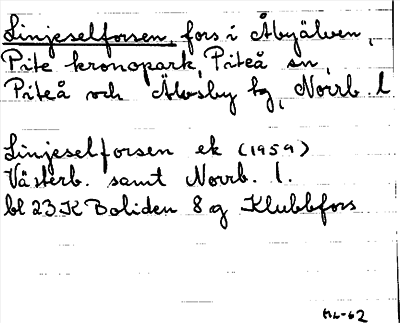 Linjeselforsen, fors i Åbyälven,
Pite kronopark, Piteå sn,
Piteå och Älvsby tg, Norrb. l
Linjeselforsen ek (1959)
Västerb. samt Norrb. l.
bl 23K Boliden 8g Klubbfors
HL-62